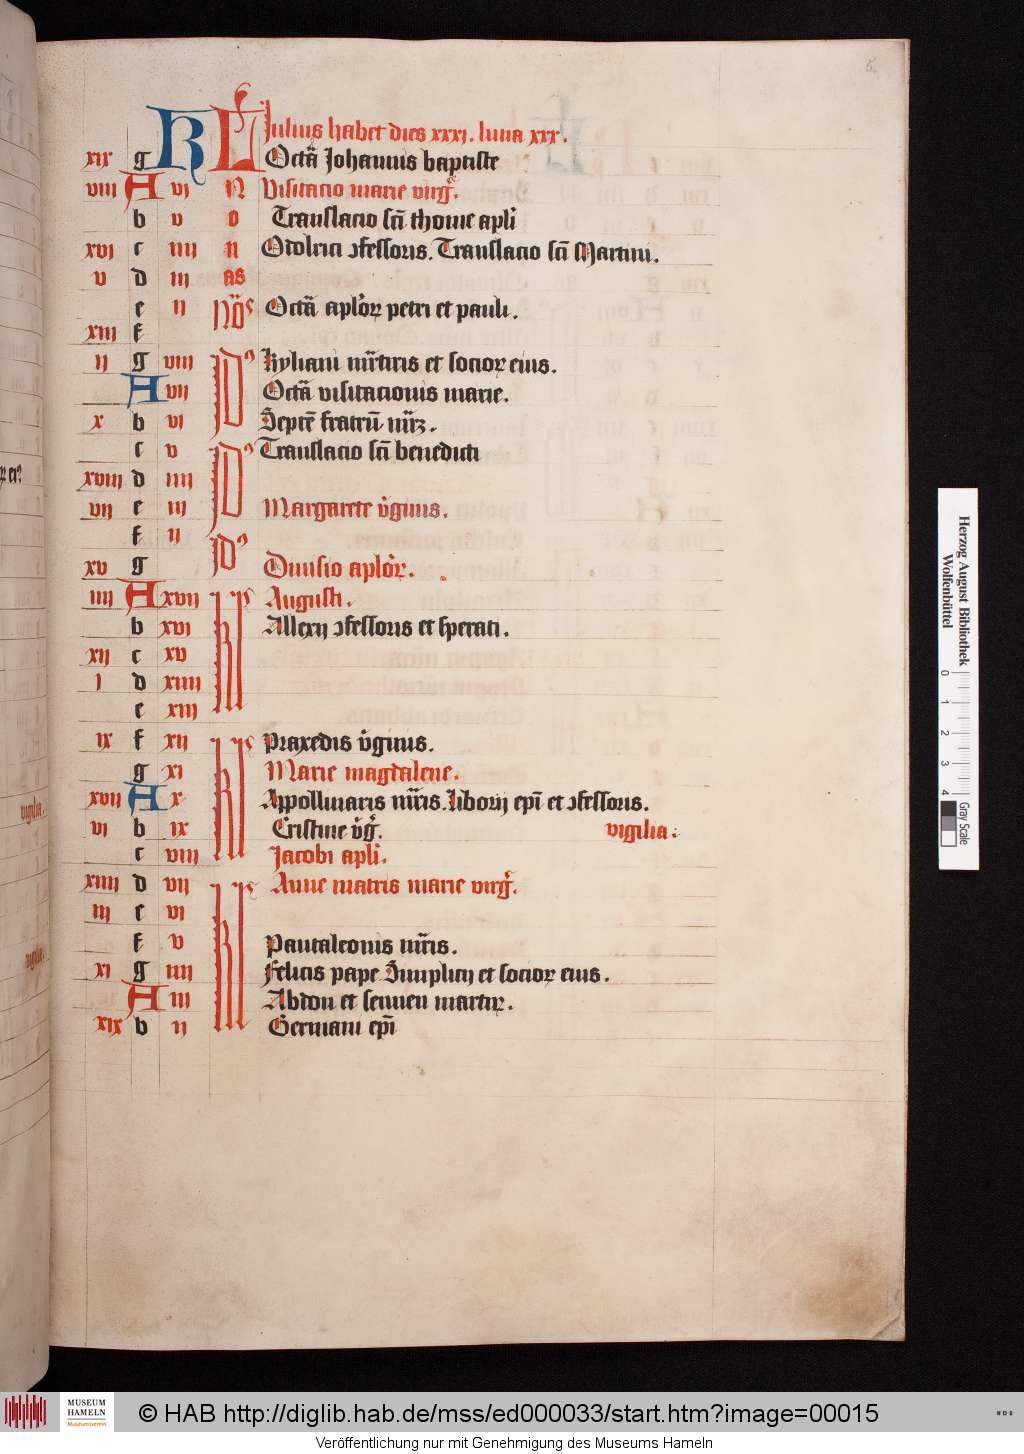 5.
KL Julius habet dies xxxi. luna xxx.
xix g Octā Johannis baptiste
viii A vi N Visitacio marie virg̃.
b v o Translacio sc̄i thome apl̄i
xvi c iiii n Odolrici ɔfessoris. Translacio sc̄i Martini.
v d iii as
e ii Nō⁹ Octā aplo℞ petri et pauli.
xiii f
ii g viii Kyliani m̄tiris et socio℞ eius.
A vii Octā visitacionis marie.
x b vi Septē fratrū m̄rz.
c v Translacio sc̄i benedicti
xviii d iiii
vii e iii Margarete v̊ginis.
f ii
xv g Jd⁹ Diuisio aplo℞.
iiii A xvii Augusti.
b xvi Allexij ɔfessoris et sperati.
xii c xv
i d xiiii
e xiii
ix f xii Praxedis v̊ginis.
g xi Marie magdalene.
xvii A x Appollinaris m̄ris. liborij ep̄i et ɔfessoris.
vi b ix Cristine v̊g̃. vigilia.
c viii Jacobi apl̄i.
xiiii d vii Anne matris marie virg̃.
iii e vi
f v Pantaleonis m̄ris.
xi g iiii Felicis pape Simplicij et socio℞ eius.
A iii Abdon et sennen marti℞.
xix b ii Germani ep̄i
vigilia.
vigilia.
Herzog August Bibliothek
Wolfenbüttel
0 1 2 3 4
Gray Scale
MUSEUM
HAMELN
Museumsverein
© HAB http://diglib.hab.de/mss/ed000033/start.htm?image=00015
Veröffentlichung nur mit Genehmigung des Museums Hameln